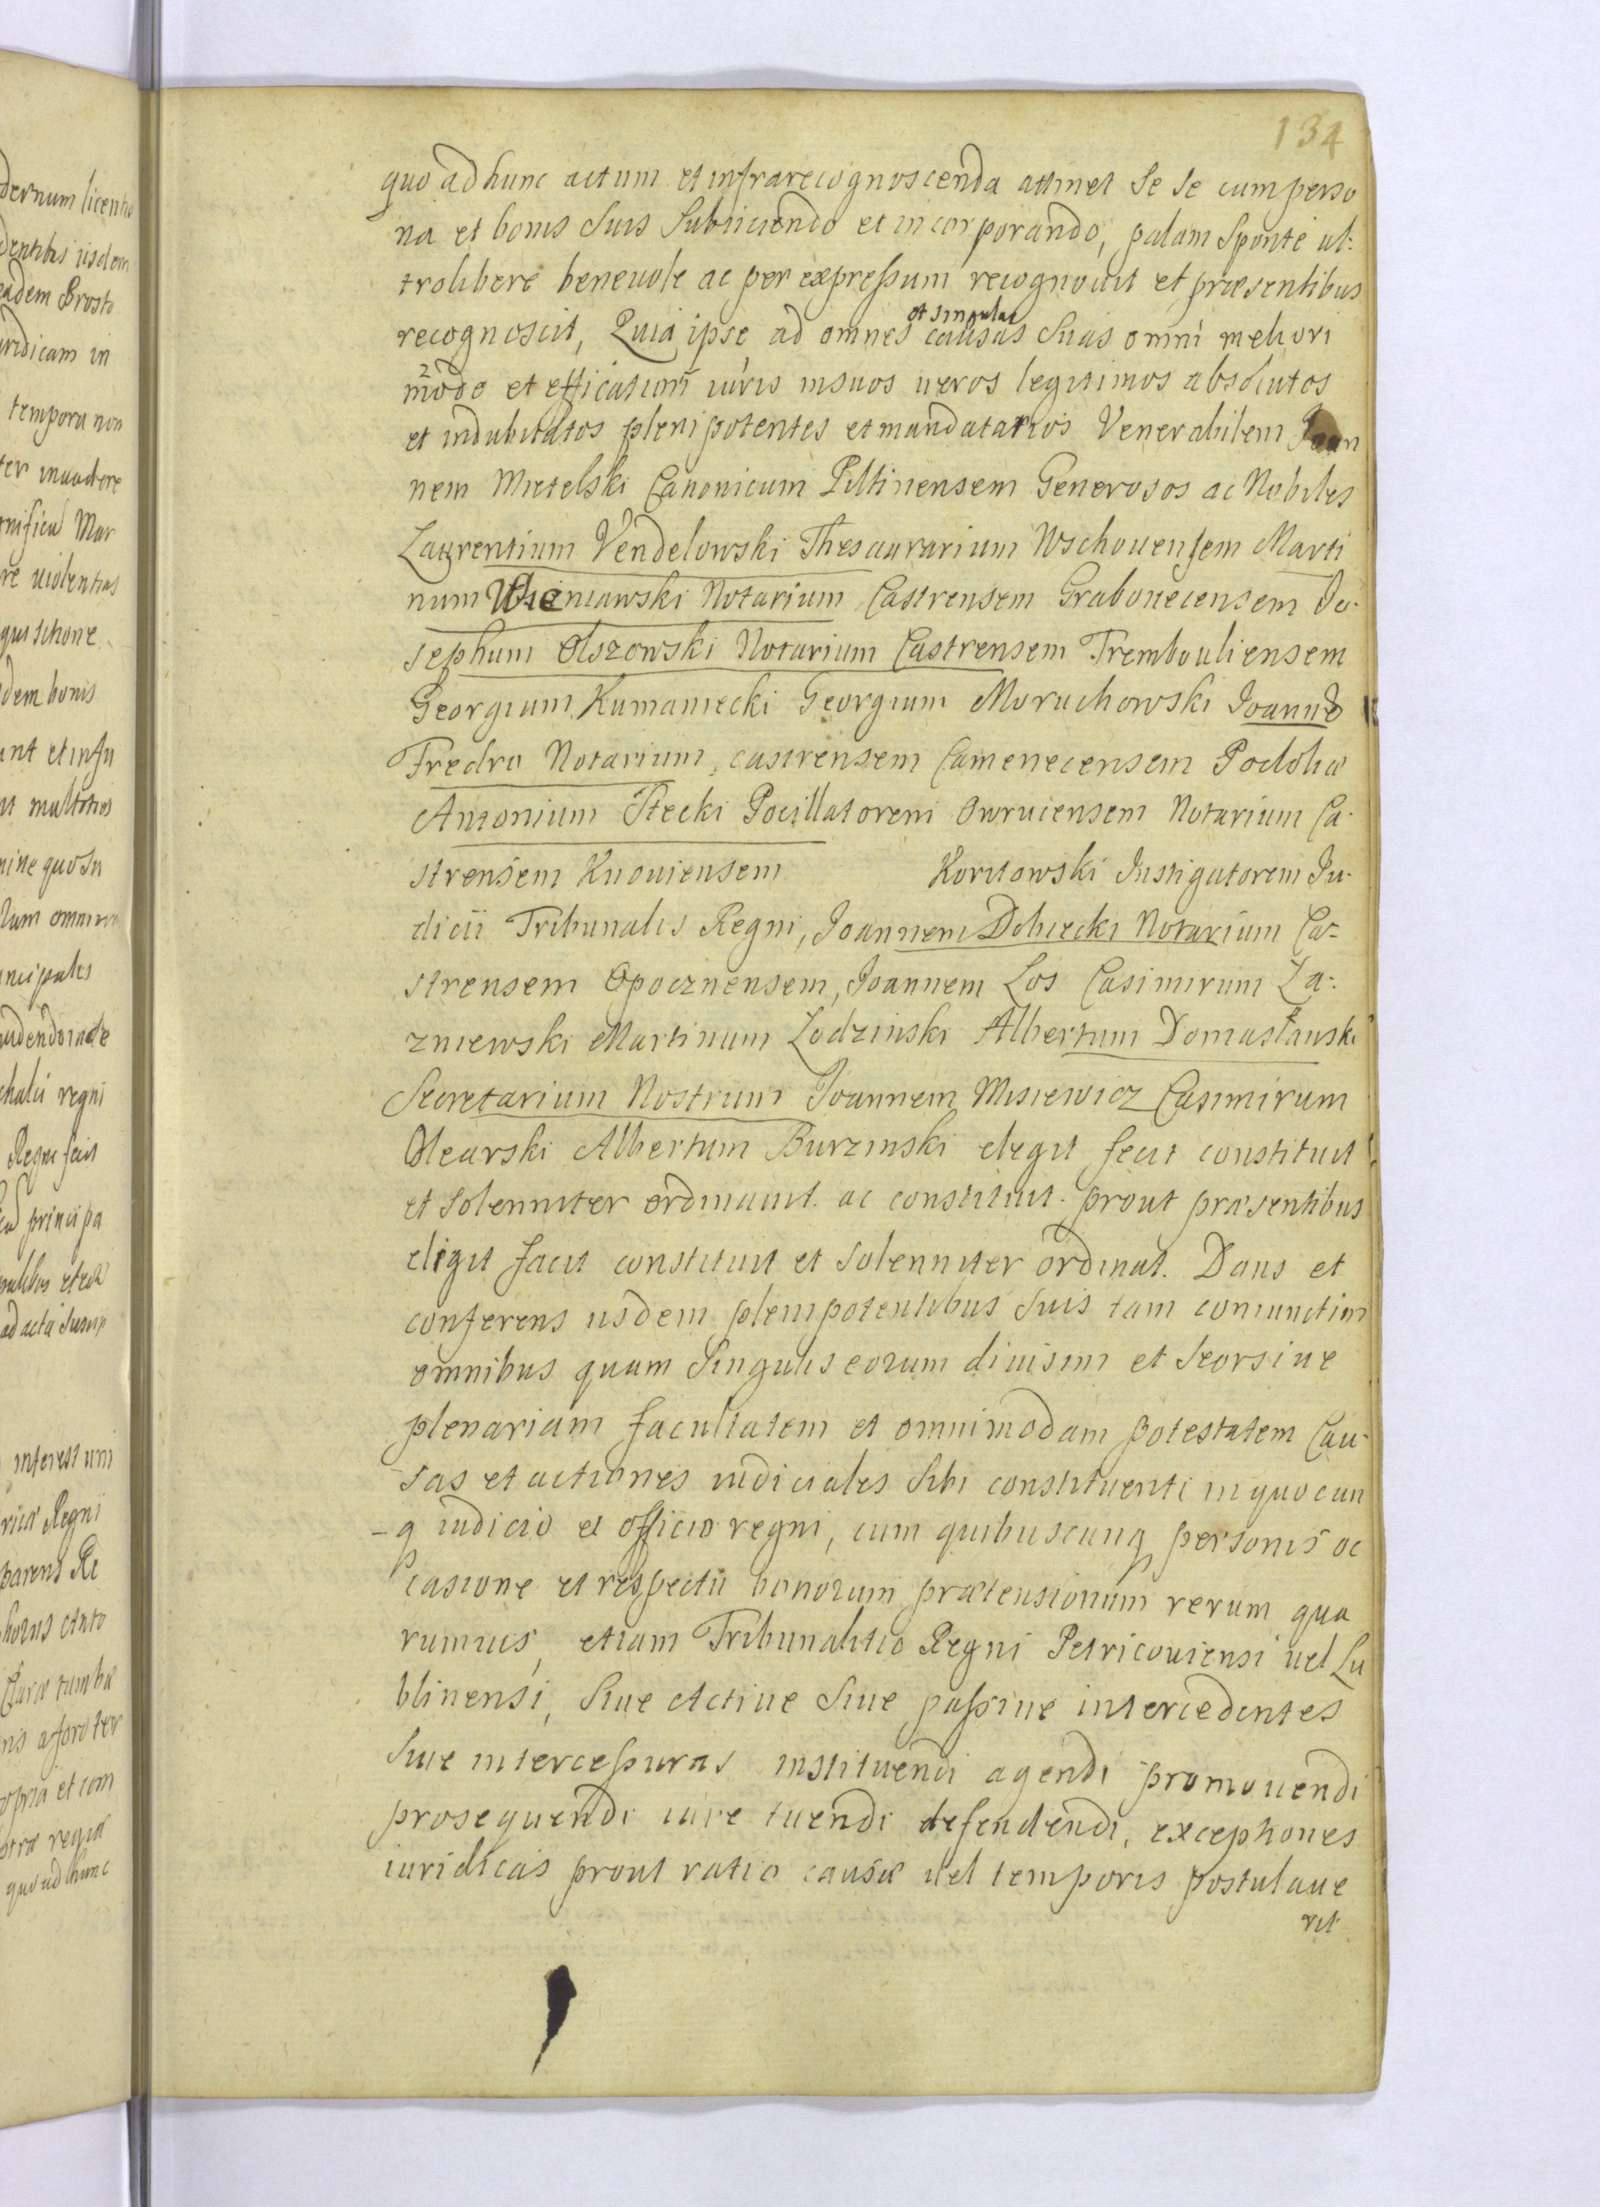 134
quo ad hunc actum et infrarecognoscenda attinet Se Se cum perso
na et bonis Suis Subiiciendo et incorporando, palam Sponte ul:
trolibere beneuole ac per expressum recognouit et præsentibus
et singulas
recognoscit, Quia ipse ad omnes causas Suas omni meliori
modo et efficatiori iuris insuos ueros legitimos absolutos
et indubitatos plenipotentes et mandatarios Venerabilem Joan
nem Mietelski Canonicum Piltinensem Generosos ac Nobiles
Laurentium Vendelowski Thesaurarium Wschouensem Marti
num Wieniawski Notarium Castrensem Grabouecensem Jo-
sephum Olszowski Notarium Castrensem Trembouliensem
Georgium Kumaniecki Georgium Moruchowski Joannē
Fredro Notarium, castrensem Camenecensem Podoliæ
Antonium Stecki Pocillatorem Owrucensem Notarium Ca-
strensem Kuouiensem Koritowski Instigatorem Ju-
dicii Tribunalis Regni, Joannem Dobiecki Notarium Ca=
strensem Opocznensem, Joannem Los Casimirum Za:
zniewski Martinum Lodzinski Albertum Domasławski
Secretarium Nostrum Joannem Misiewicz Casimirum
Olearski Albertum Burzinski elegit fecit constituit
et Solenniter ordinauit. ac constituit. prout præsentibus
eligit facit constituit et Solenniter ordinat. Dans et
conferens iisdem plenipotentibus Suis tam coniunctim
omnibus quam Singulis eorum diuisim et Seorsiue
plenariam facultatem et omnimodam potestatem Cau-
sas et actiones iudiciales Sibi constituenti in quocun
-q iudicio et officio regni, cum quibuscunq personis oc
casione et respectu bonorum prætensionum rerum qua
rumuis, etiam Tribunalitio Regni Petricouiensi uel Lu
blinensi, Siue Actiue Siue passiue intercedentes
Siue intercessuras instituendi agendi promouendi
prosequendi iure tuendi defendendi, exceptiones
iuridicas prout ratio causæ uel temporis postulaue
rit